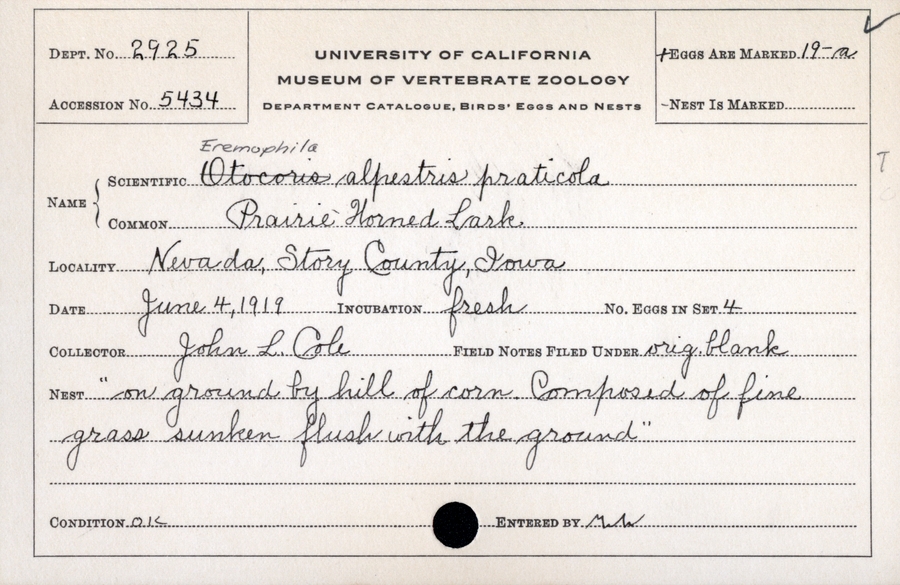 DEPT. No. 2925
ACCESSION No. 5434
UNIVERSITY OF CALIFORNIA
MUSEUM OF VERTEBRATE ZOOLOGY
DEPARTMENT CATALOGUE, BIRDS' EGGS AND NESTS
+EGGS ARE MARKED 19-a
-NEST IS MARKED
T
Eremophila
NAME
SCIENTIFIC Otocoris alpestris praticola
COMMON Prairie Horned Lark
LOCALITY Nevada, Story County, Iowa
DATE June 4, 1919 INCUBATION fresh NO. EGGS IN SET 4
COLLECTOR John L. Cole FIELD NOTES FILED UNDER orig. blank
NEST "on ground by hill of corn. Composed of fine
grass sunken flush with the ground"
CONDITION OK ENTERED BY